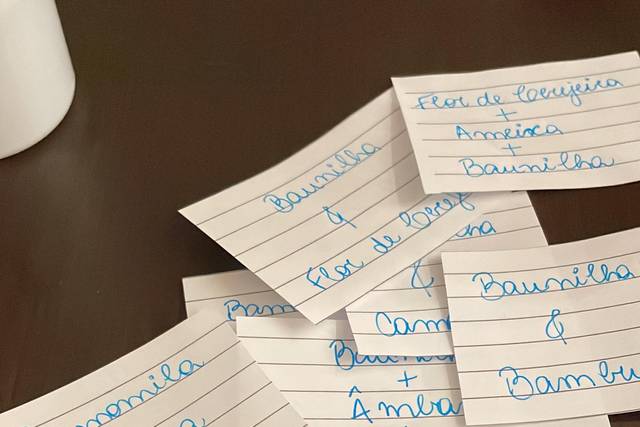 Flor de Cerejeira
+
Ameixa
+
Baunilha
Baunilha
&
Flor de Cerej
&
Cam
Baunilha
&
Bambu
Bam
+
Âmba
momila